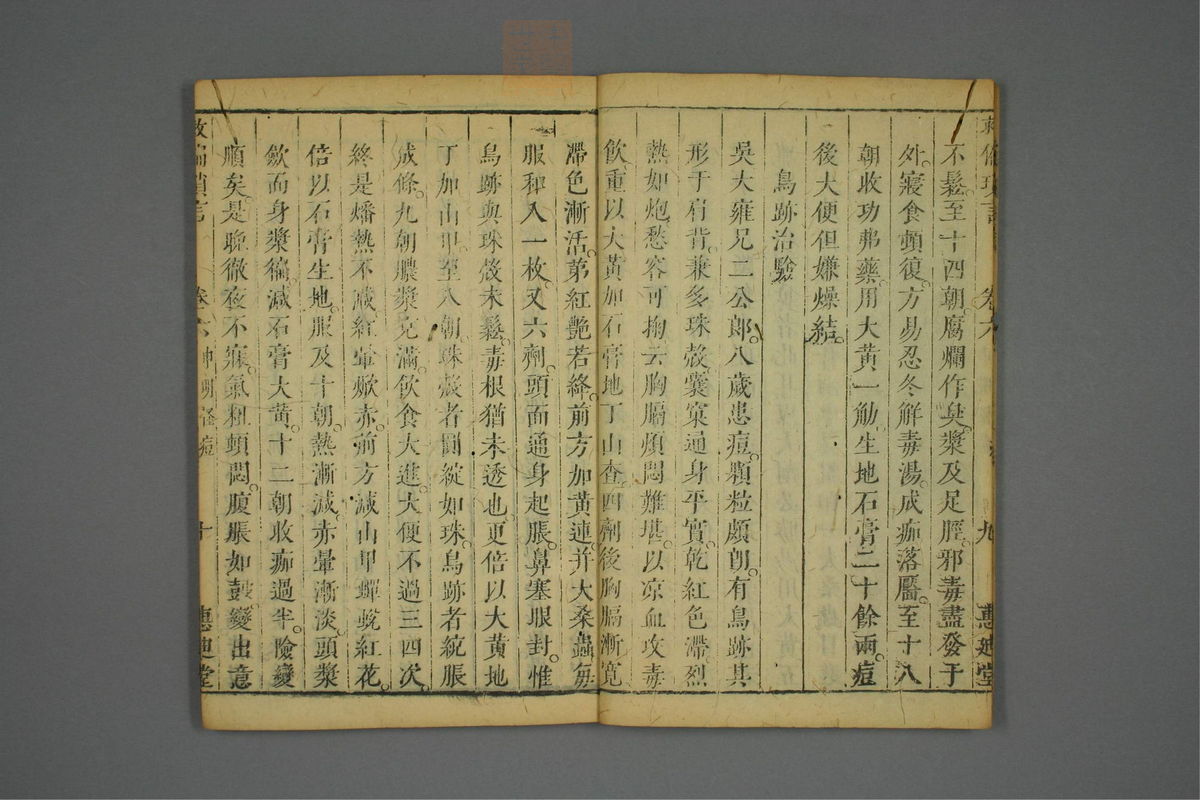 不鬆。至十四朝。腐爛作臭。漿及足脛。邪毒盡發于
外。寢食頓復。方易忍冬解毒湯。成痂落靨。至十八
朝收功弗藥。用大黃一觔。生地石膏二十餘兩。痘
後大便但嫌燥結。
鳥跡治驗
吳大雍兄二公郎。八歲患痘。顆粒頗朗。有鳥跡其
形于肩背。兼多珠殼囊窠。通身平實。乾紅色滯。烈
熱如炮。愁容可掬。云胸膈煩悶難堪。以凉血攻毒
飲。重以大黃加石膏地丁山查。四劑後胸膈漸寬
滯色漸活。第紅艷若絳。前方加黃連。并大桑蟲每
服稗入一枚。又六劑。頭面通身起脹。鼻塞眼封。惟
鳥跡與珠殼未鬆。毒根猶未透也。更倍以大黃地
丁加山甲。至八朝。珠殼者圓綻如珠。鳥跡者統脹
成條。九朝膿漿克滿。飲食大進。大便不過三四次。
終是燔熱不減。紅暈焮赤。前方減山甲蟬蛻紅花。
倍以石膏生地。服及十朝。熱漸減。赤暈漸淡。頭漿
斂而身漿稿。減石膏大黃。十二朝收痂過半。險變
順矣。是晚徹夜不寐。氣粗頓悶。腹脹如鼓。變出意
卷六
九
惠迪堂
瑣言
卷六
怪痘
十
惠迪堂